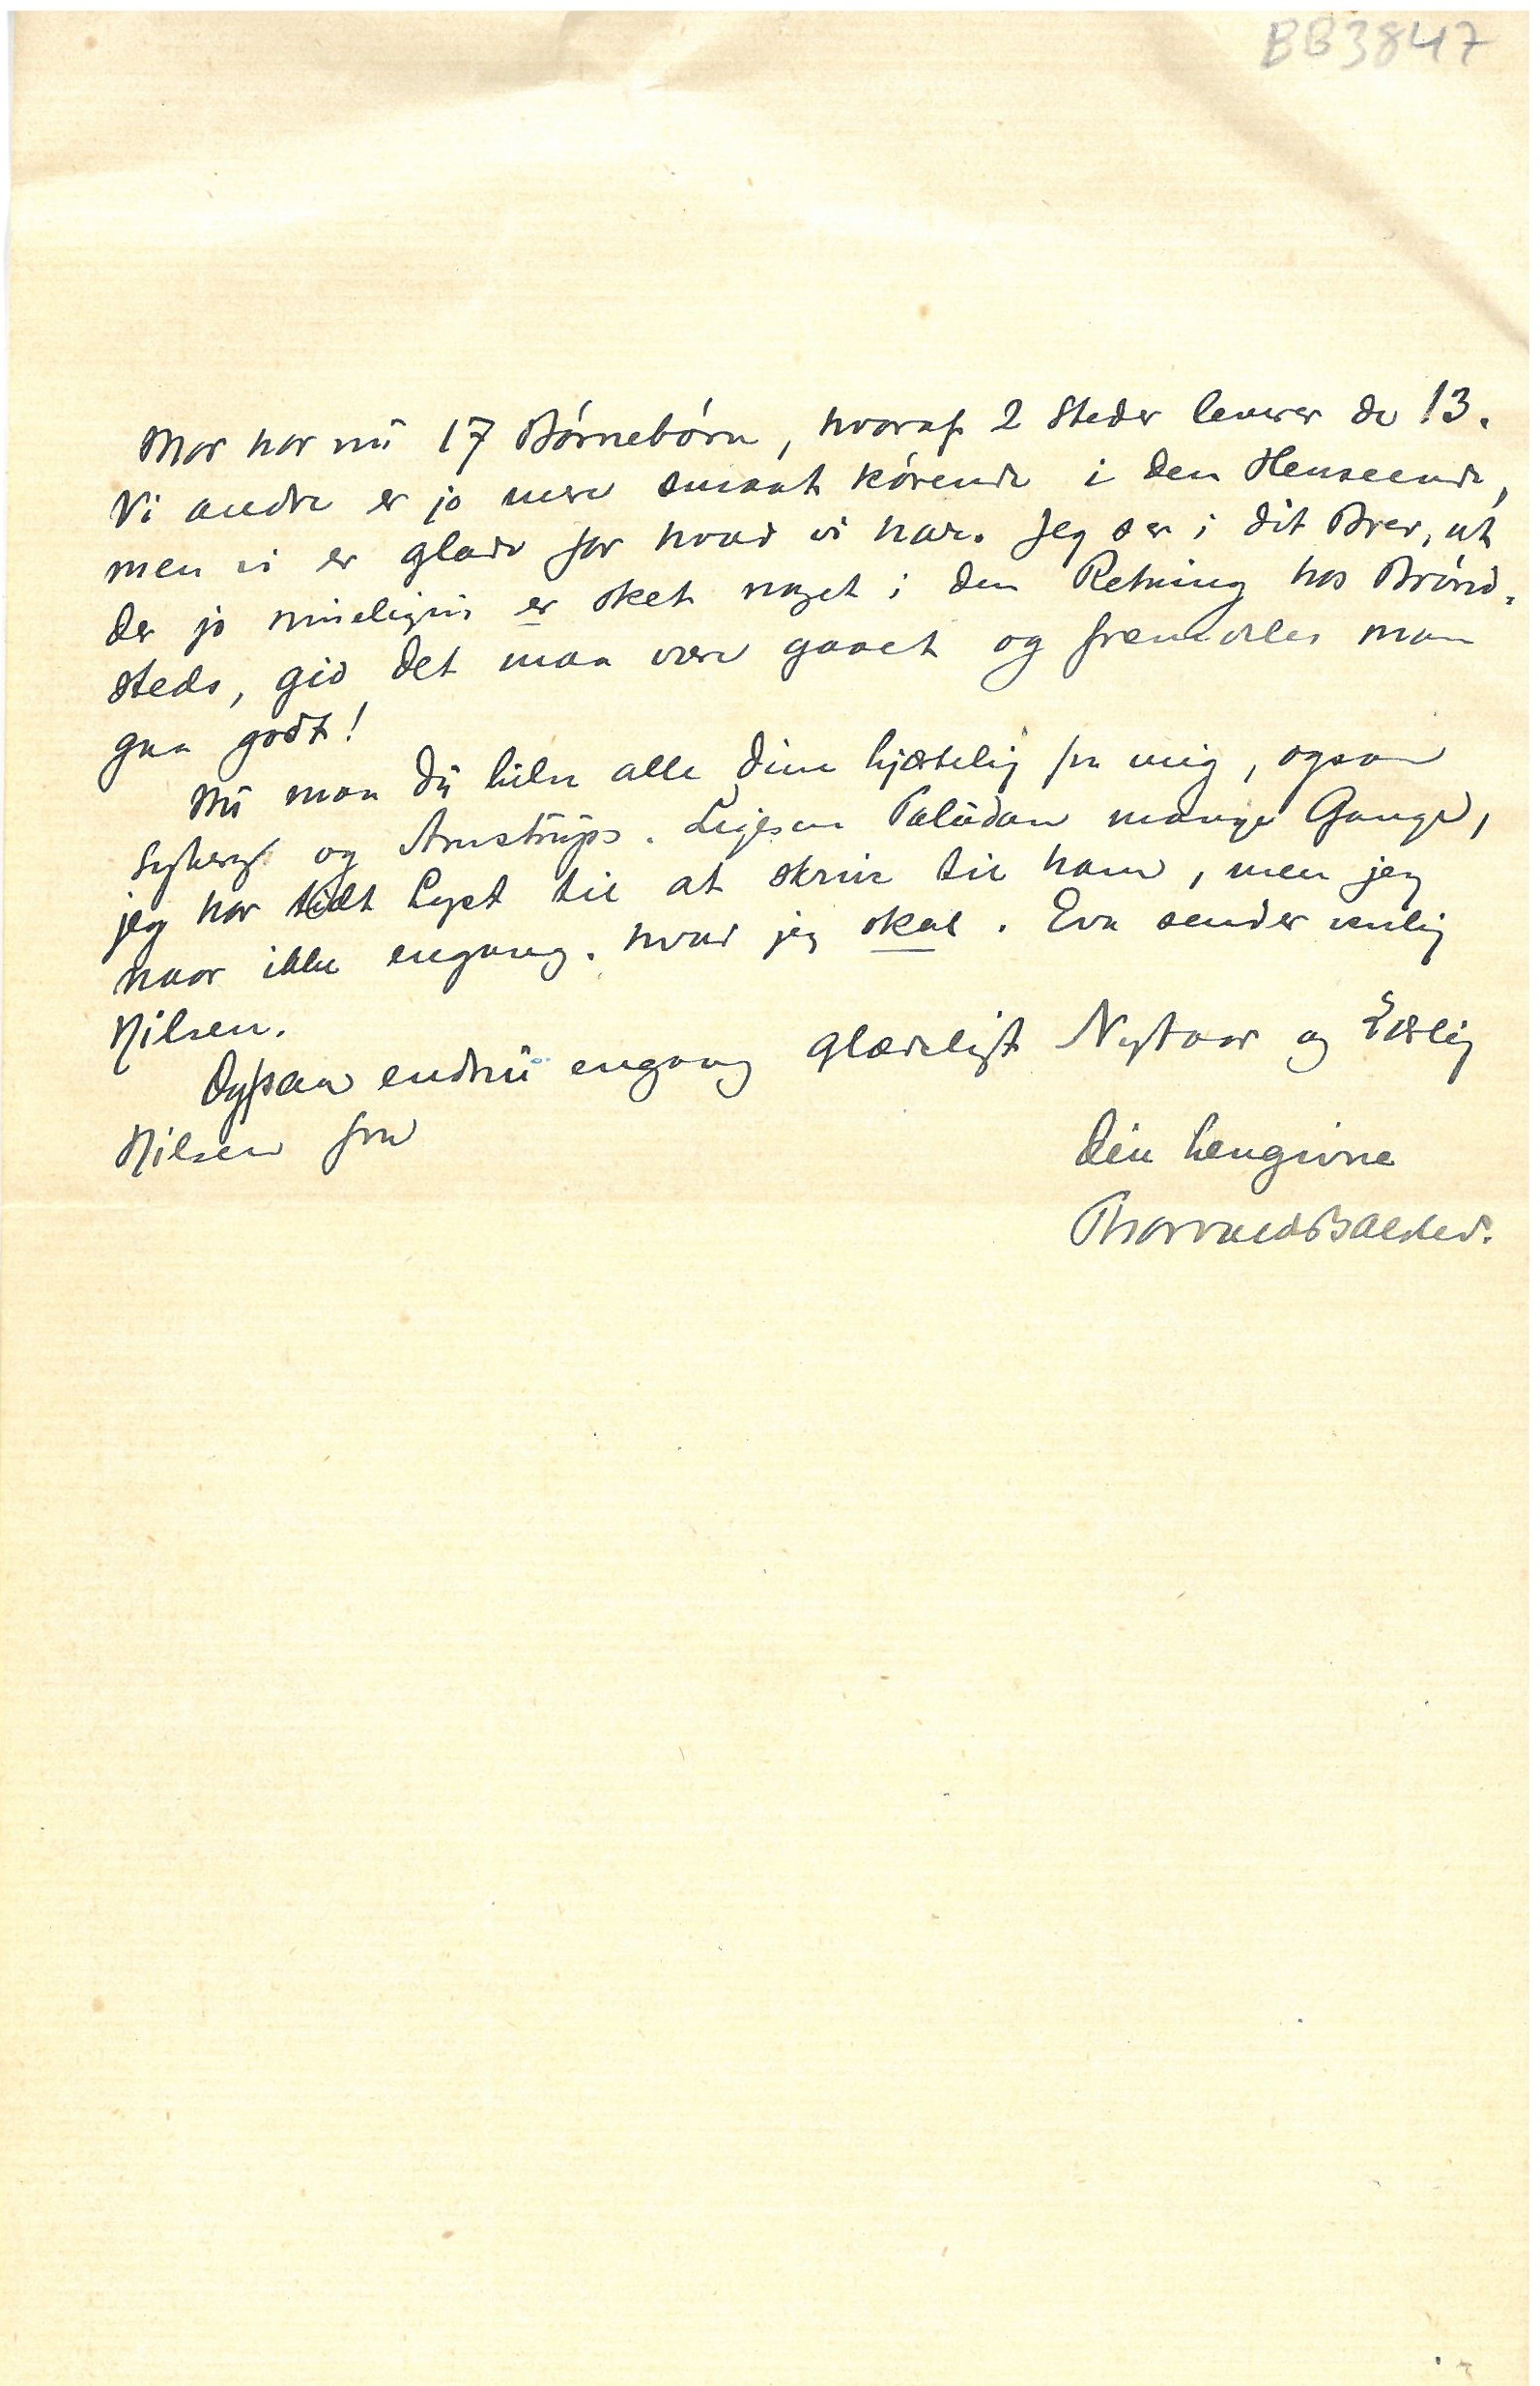 BB3847
Mor har nu 17 Børnebørn, hvoraf 2 Steder leverer de 13.
Vi andre er jo mere smaat kørende i den Henseende,
men vi er glade for hvad vi har. Jeg ser i dit Brev, at
der jo muligvis er sket noget i den Retning hos Brønd-
steds, gid det maa være gaaet og fremdeles maa
gaa godt!
Nu maa du hilse alle dine hjertelig fra mig, ogsaa
Sybergs og Arnstrups. Ligesaa Paludan mange Gange,
jeg har tidt Lyst til at skrive til ham, men jeg
naar ikke engang, hvad jeg skal. Eva sender venlig
Hilsen.
Ogsaa endnu engang glædeligt Nytaar og
Hilsen fra
din hengivne
Thorvald Balslev.